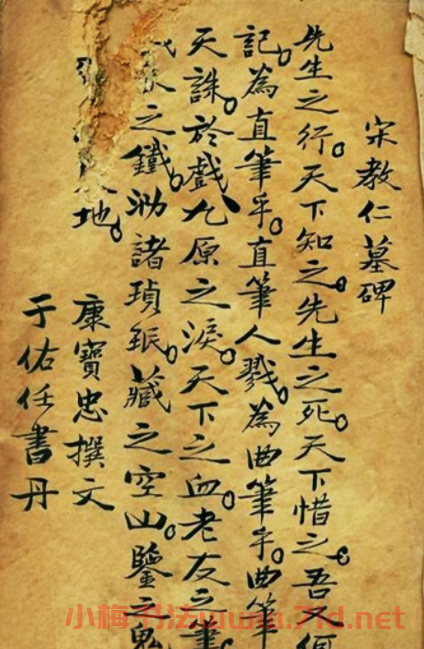 宋教仁墓碑
先生之行。天下知之。先生之死。天下惜之。吾又何
記。為直筆乎。直筆人戮。為曲筆乎。曲筆
天誅。於戲九原之淚。天下之血。老友之筆。
之鐵。泐諸瑱珉。藏之空山。鑒之鬼
地。
康寶忠撰文
于佑任書丹
小梅书法www.7ld.net